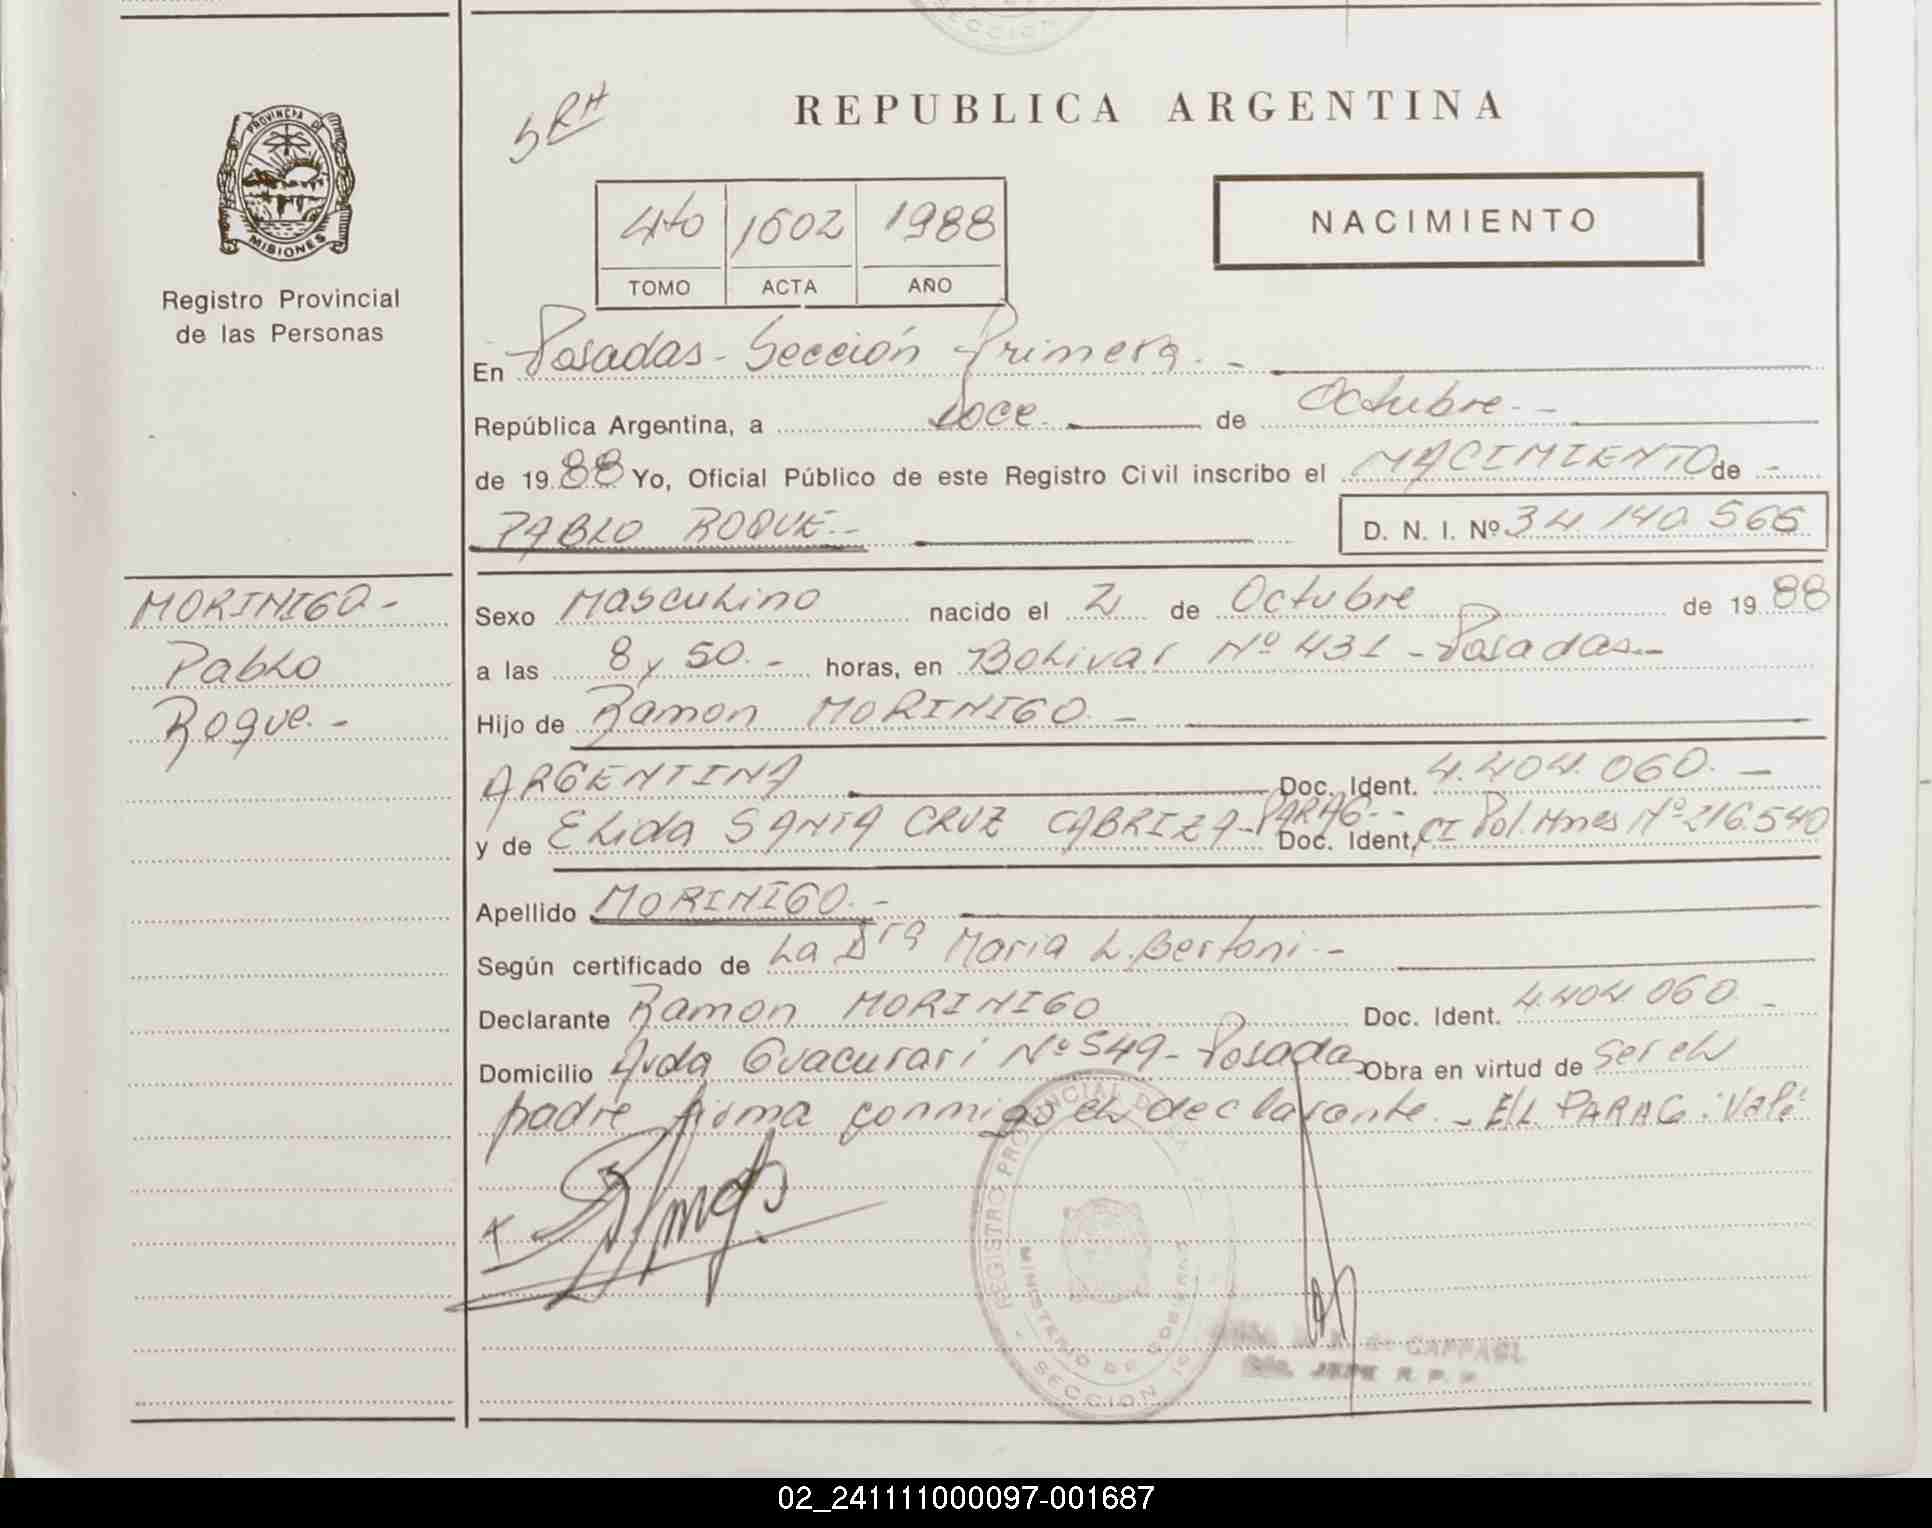 PROVINCIA DE
MISIONES
Registro Provincial
de las Personas
MORINIGO.-
Pablo
Roque.-
REPUBLICA ARGENTINA
NACIMIENTO
4to 1602 1988
TOMO ACTA AÑO
En Posadas - Sección Primera.-
República Argentina, a Doce. de Octubre.-
de 1988 Yo, Oficial Público de este Registro Civil inscribo el NACIMIENTO de -
PABLO ROQUE.- D. N. I. Nº 34.140.566
Sexo Masculino nacido el 2 de Octubre de 1988
a las 8 y 50.- horas, en Bolivar Nº 431 - Posadas.-
Hijo de Ramon MORINIGO.-
ARGENTINA Doc. Ident. 4.404.060.-
y de Elida SANTA CRUZ CABRIZA - PARAG.- Doc. Ident. CI Pol. Mnes Nº 216.540
Apellido MORINIGO.-
Según certificado de La Dra Maria L. Bertoni.-
Declarante Ramon MORINIGO Doc. Ident. 4.404.060.-
Domicilio Avda Guacurari Nº 549 - Posadas Obra en virtud de ser el
padre firma conmigo el declarante.- E/L PARAG: Vale
REGISTRO PROVINCIAL DE
MINISTERIO DE GOBIERNO
SECCION 1ª
JEFE R. P. P.
02_241111000097-001687